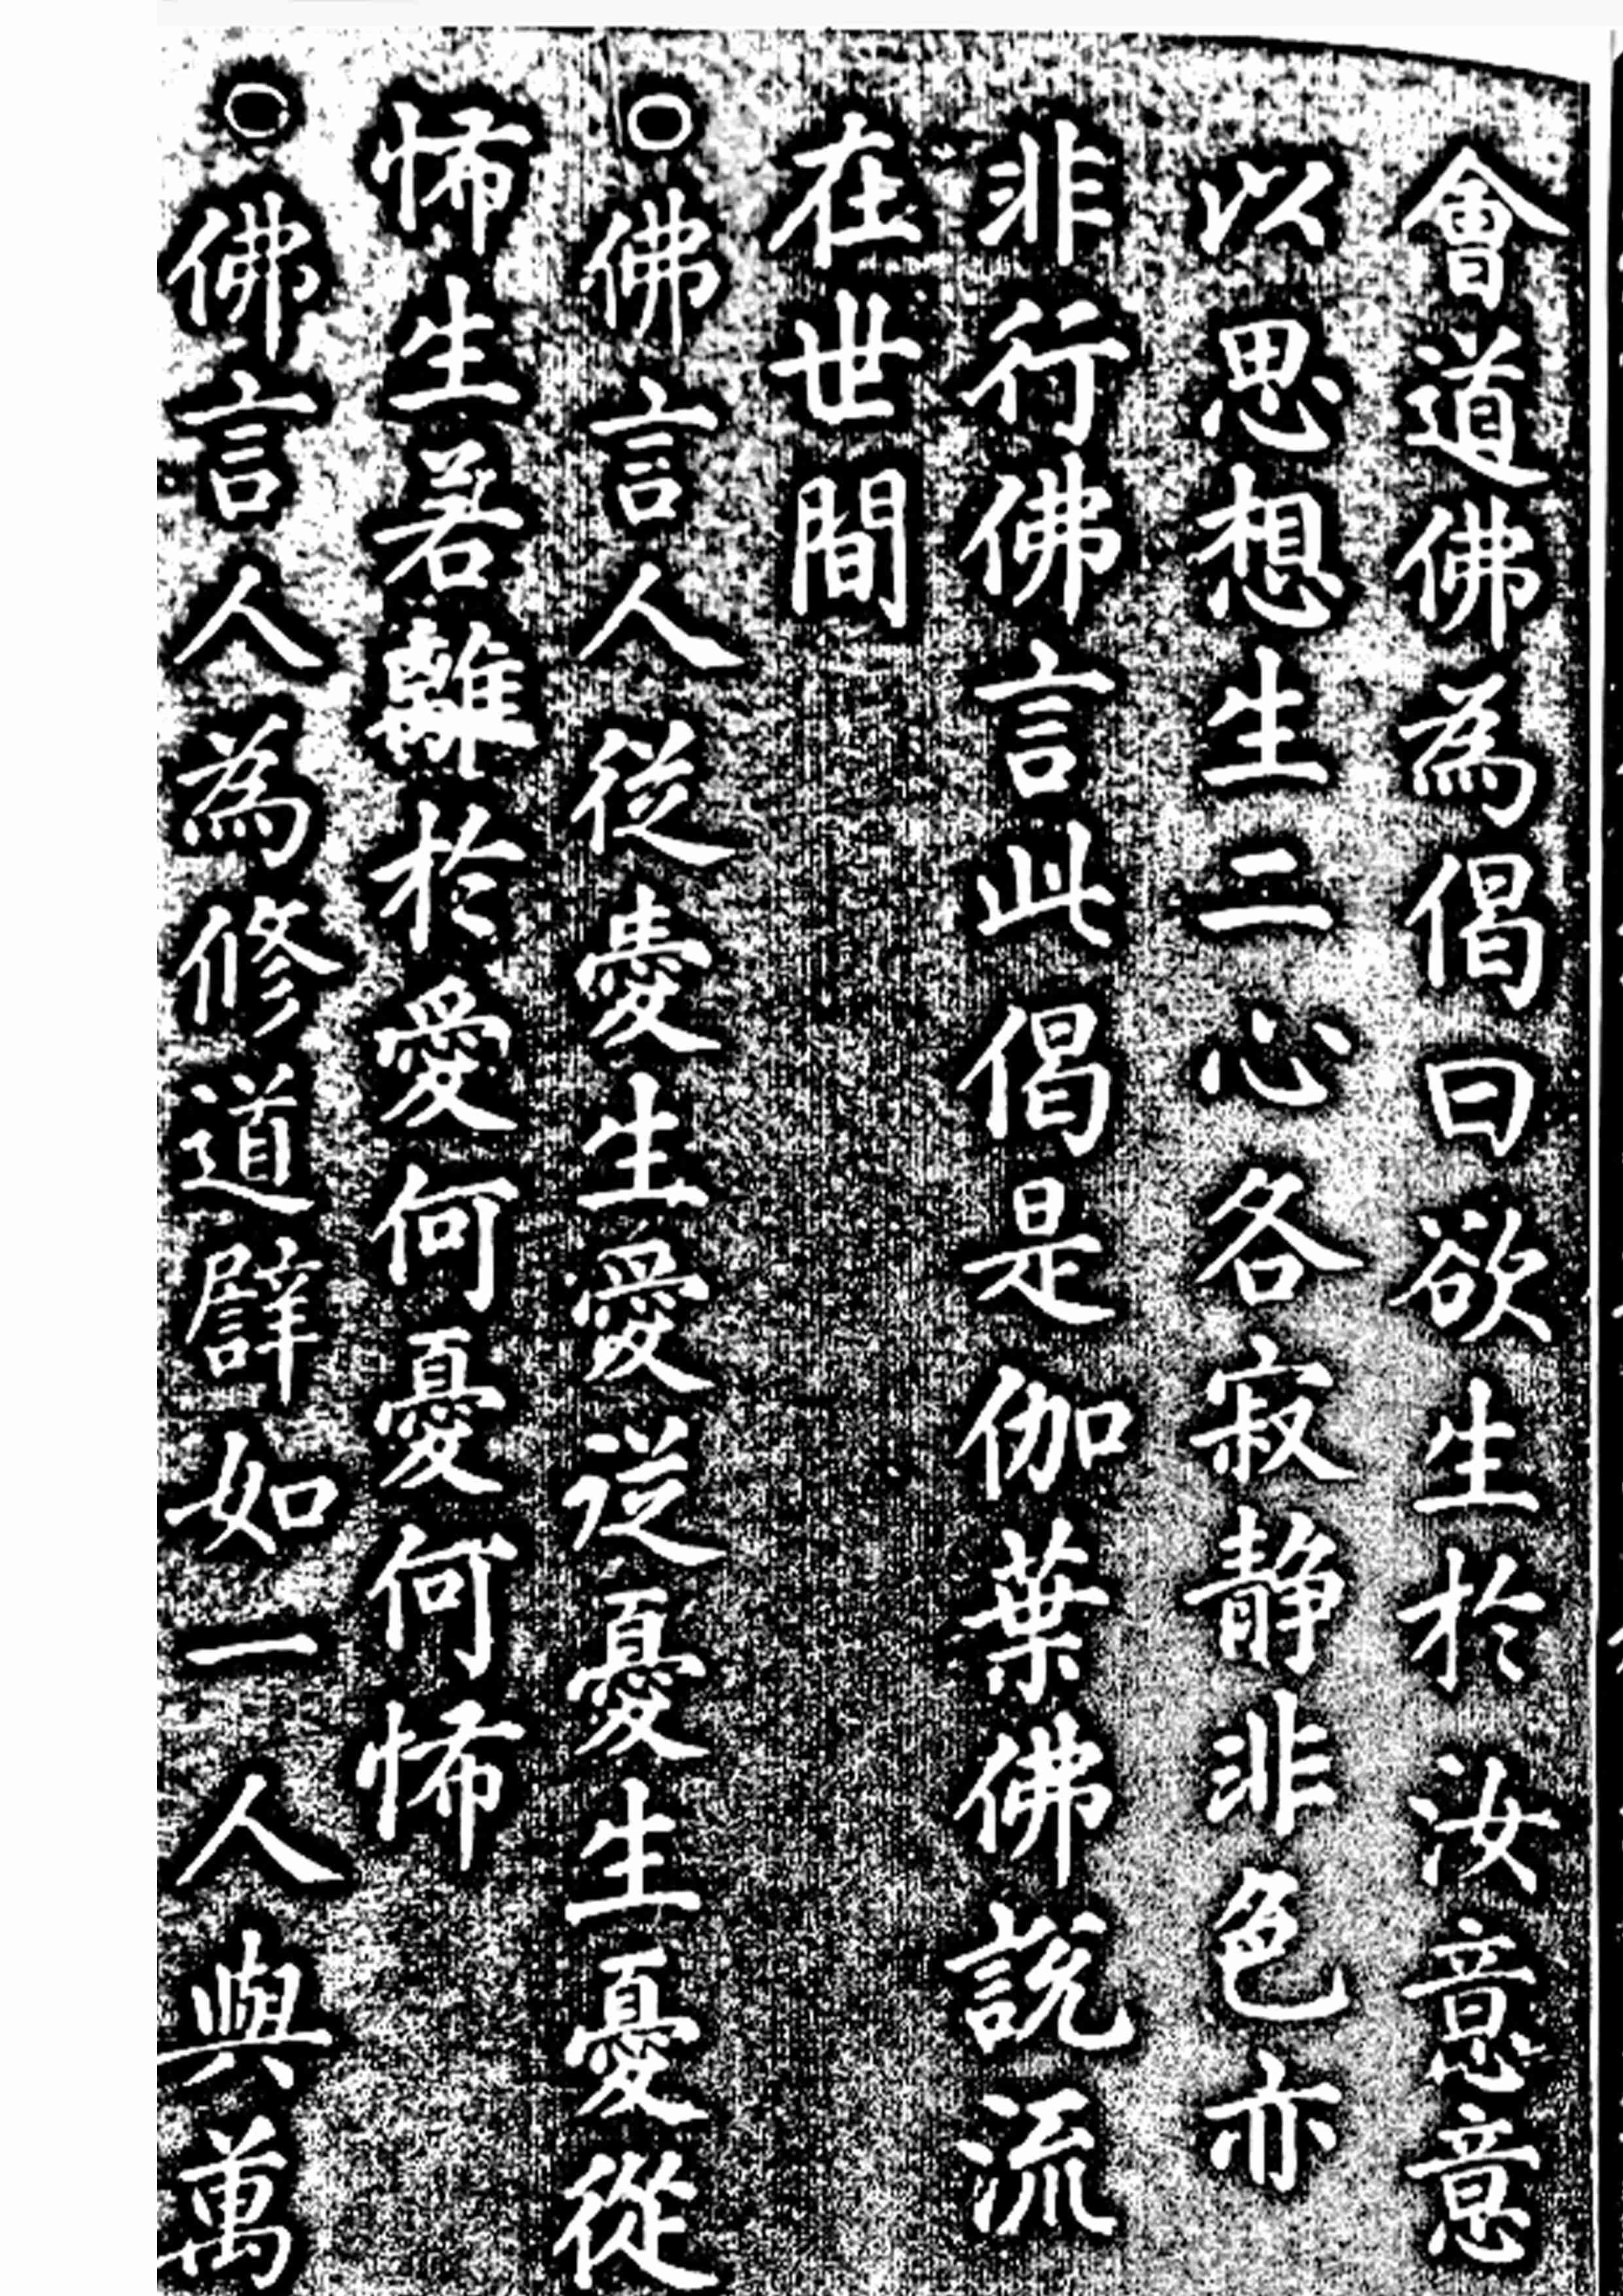 會道佛為偈曰欲生於汝意意
以思想生二心各寂静非色亦
非行佛言此偈是伽葉佛説流
在世間
○佛言人従生愛従憂生憂從
怖生若離於愛何憂何怖
○佛言人為修道譬如一人與萬